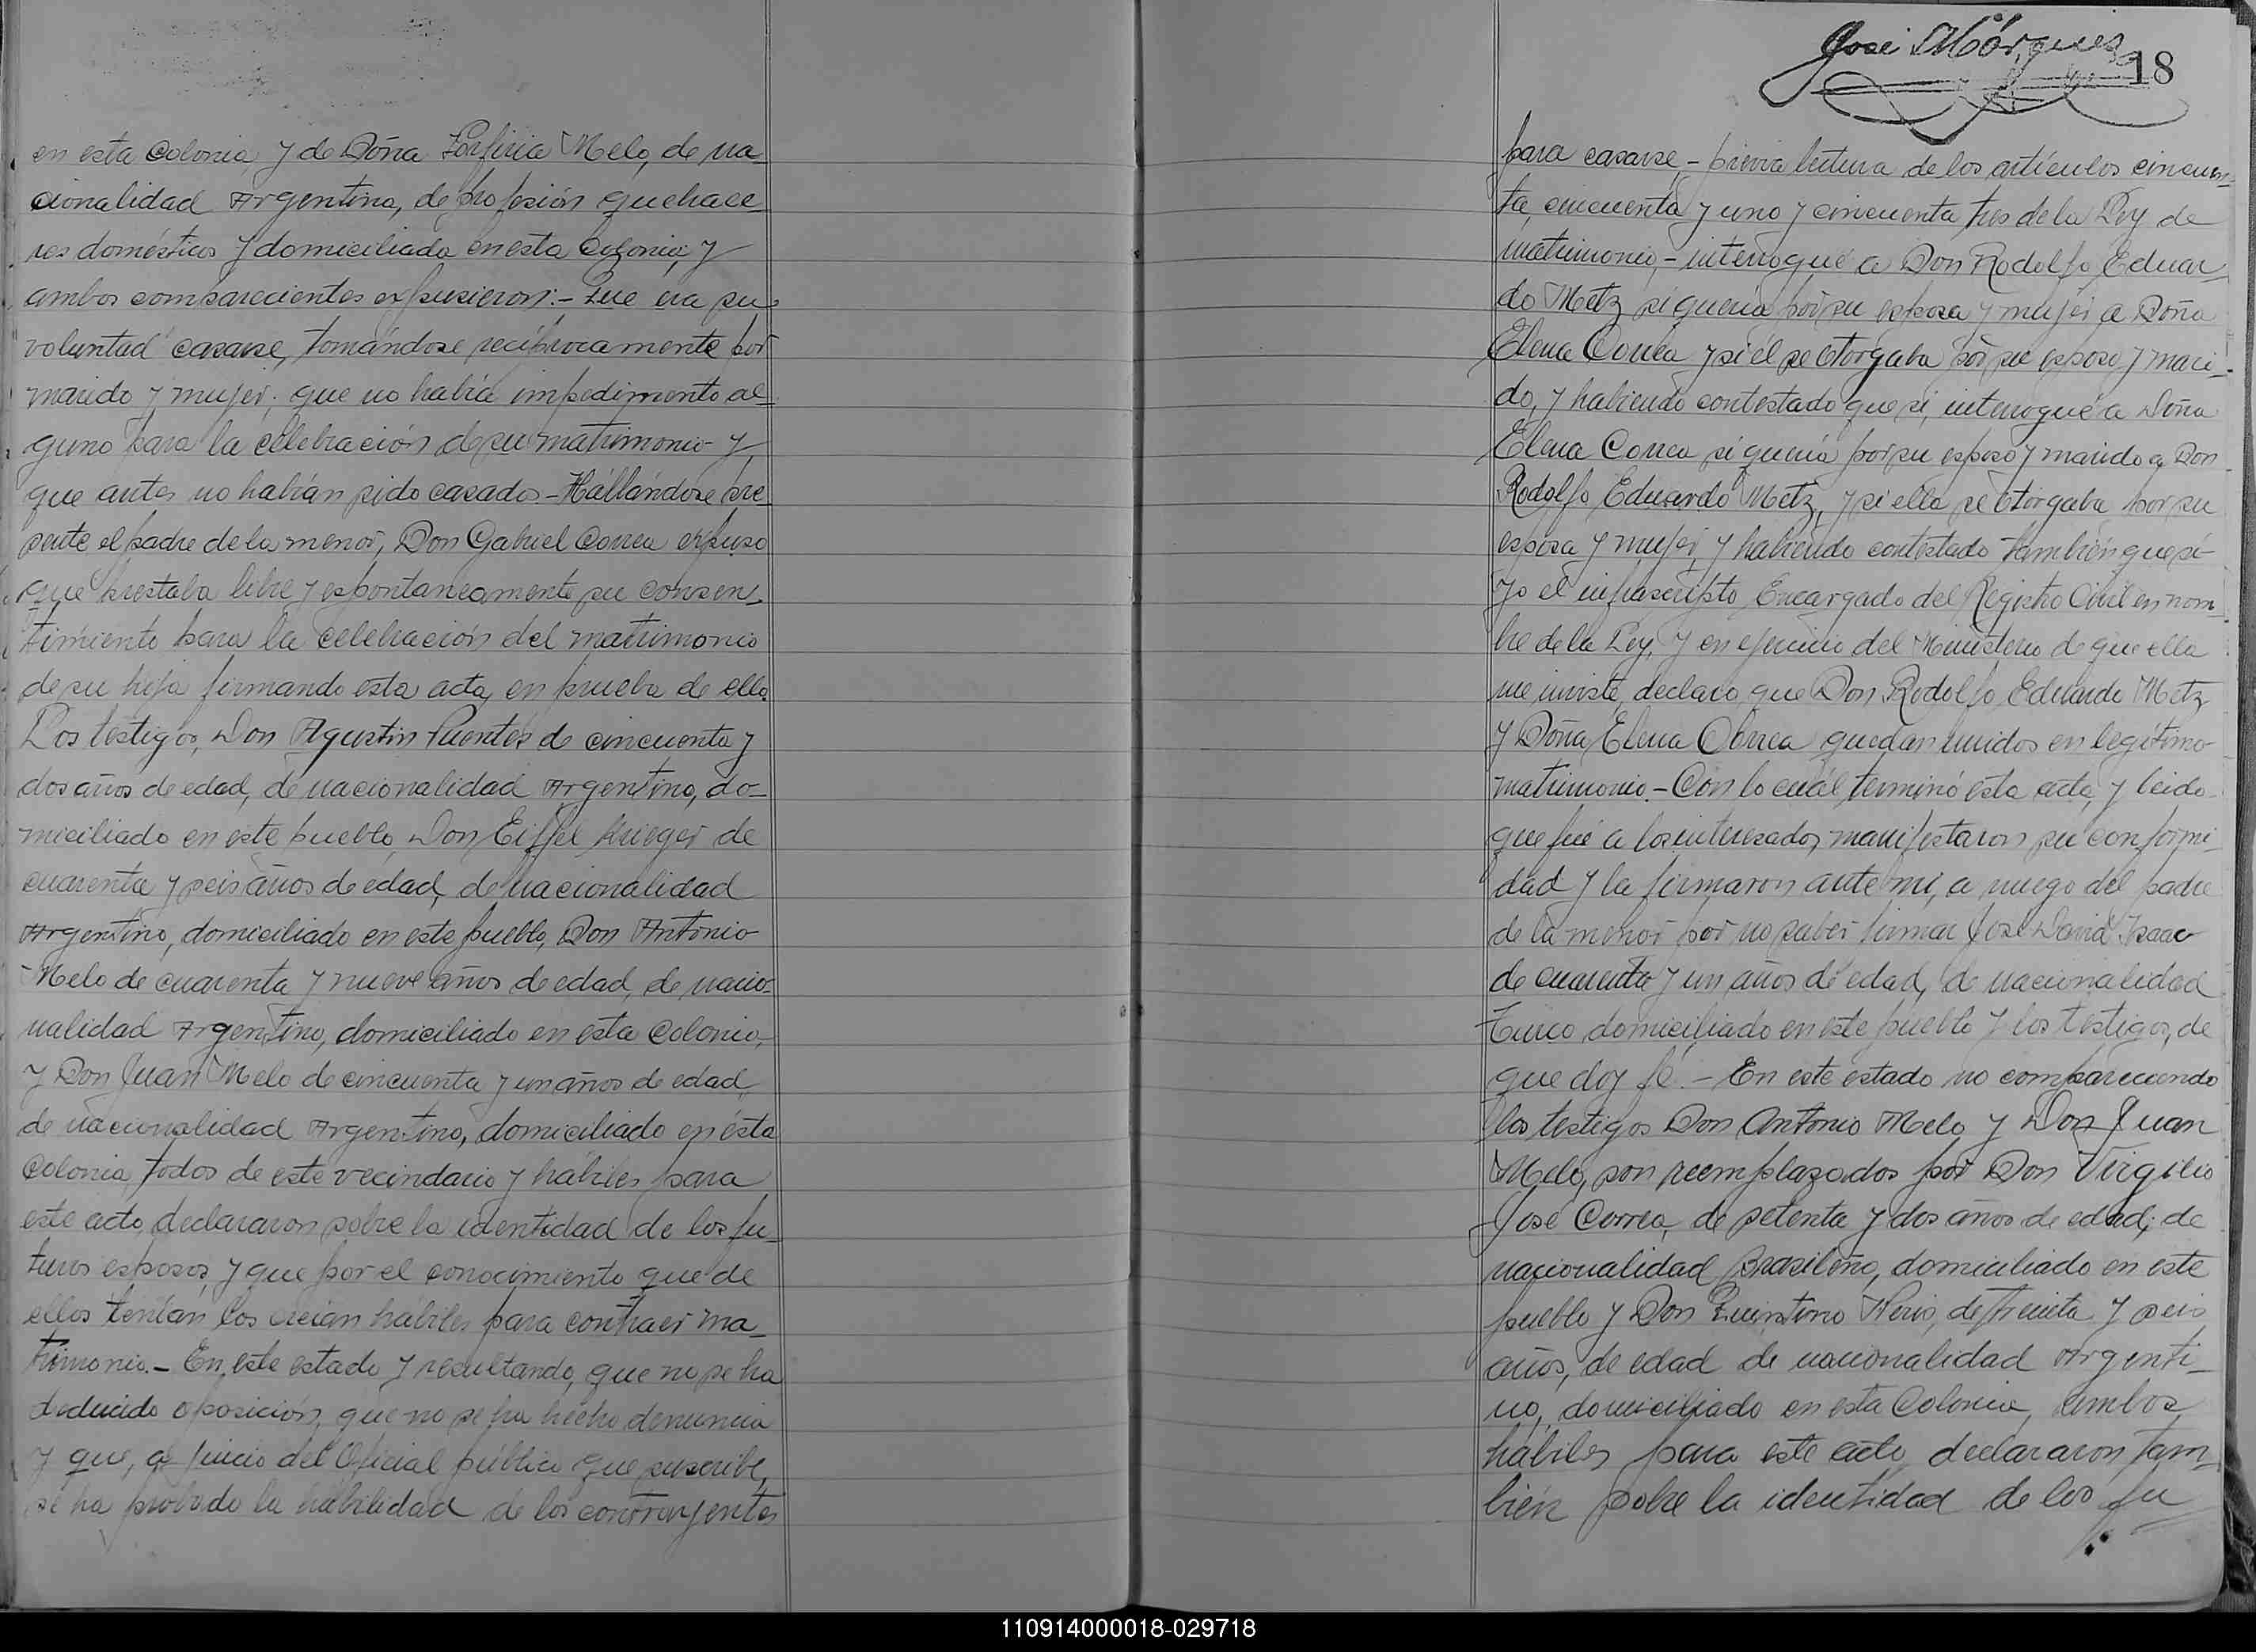 en esta Colonia, y de Doña Porfiria Melo, de na-
cionalidad Argentina, de profesión quehace-
res domésticos y domiciliada en esta Colonia, y
ambos comparecientes expusieron:- Que era su
voluntad casarse, tomándose recíprocamente por
marido y mujer; que no había impedimento al-
guno para la celebración de su matrimonio y
que antes no habían sido casados.- Hallándose pre-
sente el padre de la menor, Don Gabriel Correa expuso
que prestaba libre y espontaneamente su consen-
timiento para la celebración del matrimonio
de su hija firmando esta acta, en prueba de ello.
Los testigos, Don Agustin Puentes de cincuenta y
dos años de edad, de nacionalidad Argentino, do-
miciliado en este pueblo, Don Eiffel Krieger de
cuarenta y seis años de edad, de nacionalidad
Argentino, domiciliado en este pueblo, Don Antonio
Melo de cuarenta y nueve años de edad, de nacio-
nalidad Argentino, domiciliado en esta Colonia,
y Don Juan Melo de cincuenta y un años de edad,
de nacionalidad Argentino, domiciliado en ésta
Colonia, todos de este vecindario y hábiles para
este acto, declararon sobre la identidad de los fu-
turos esposos, y que por el conocimiento que de
ellos tenían los creían hábiles para contraer ma-
trimonio.- En este estado y resultando, que no se ha
deducido oposición, que no se ha hecho denuncia
y que, a juicio del Oficial público que suscribe,
se ha probado la habilidad de los contrayentes
José Márquez
18
para casarse,- previa lectura de los artículos cincuen-
ta, cincuenta y uno y cincuenta tres de la Ley de
matrimonio,- interrogué a Don Rodolfo Eduar-
do Metz si quería por su esposa y mujer a Doña
Elena Correa y si él se otorgaba por su esposo y mari-
do, y habiendo contestado que sí, interrogué a Doña
Elena Correa si quería por su esposo y marido a Don
Rodolfo Eduardo Metz, y si ella se otorgaba por su
esposa y mujer, y habiendo contestado también que sí
yo el infrascripto Encargado del Registro Civil en nom-
bre de la Ley, y en ejercicio del Ministerio de que ella
me inviste, declaro que Don Rodolfo Eduardo Metz
y Doña Elena Correa quedan unidos en legítimo
matrimonio.- Con lo cuál terminó esta acta, y leida
que fué a los interesados, manifestaron su conformi-
dad y la firmaron ante mi, a ruego del padre
de la menor por no saber firmar José David Isaac
de cuarenta y un años de edad, de nacionalidad
Turco domiciliado en este pueblo y los testigos, de
que doy fé.- En este estado no compareciendo
los testigos Don Antonio Melo y Don Juan
Melo, son reemplazados por Don Virgilio
José Correa, de setenta y dos años de edad, de
nacionalidad Brasileño, domiciliado en este
pueblo y Don Quintino Neris, de treinta y seis
años, de edad de nacionalidad Argenti-
no, domiciliado en esta Colonia, ambos
hábiles para este acto, declararon tam-
bién sobre la identidad de los fu
110914000018-029718